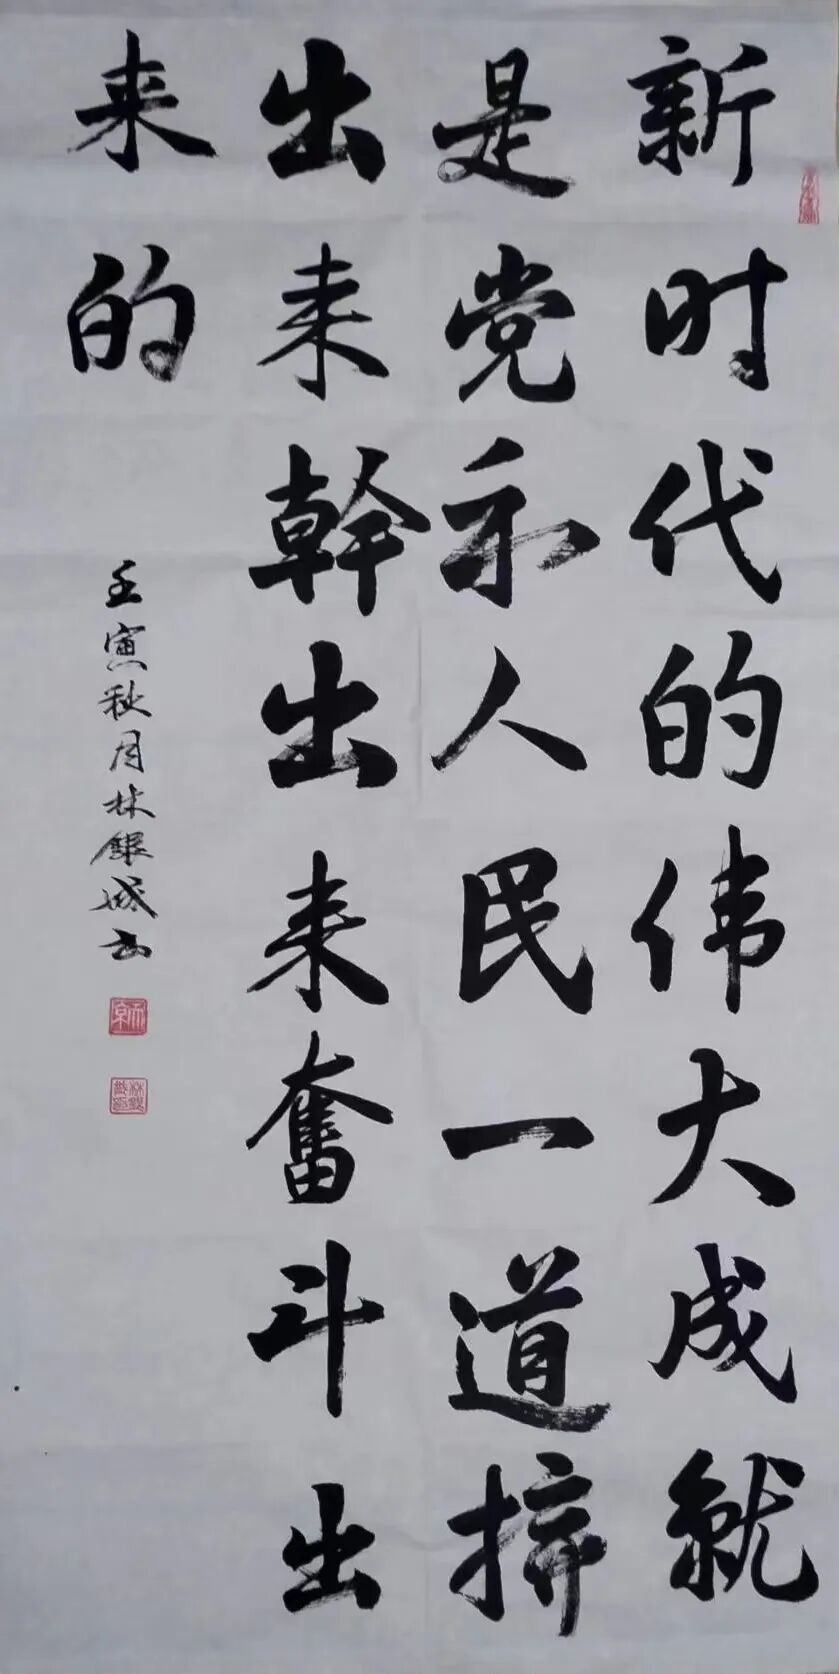 新时代的伟大成就
是党和人民一道拼
出来幹出来奮斗出
来的
壬寅秋月林银城书